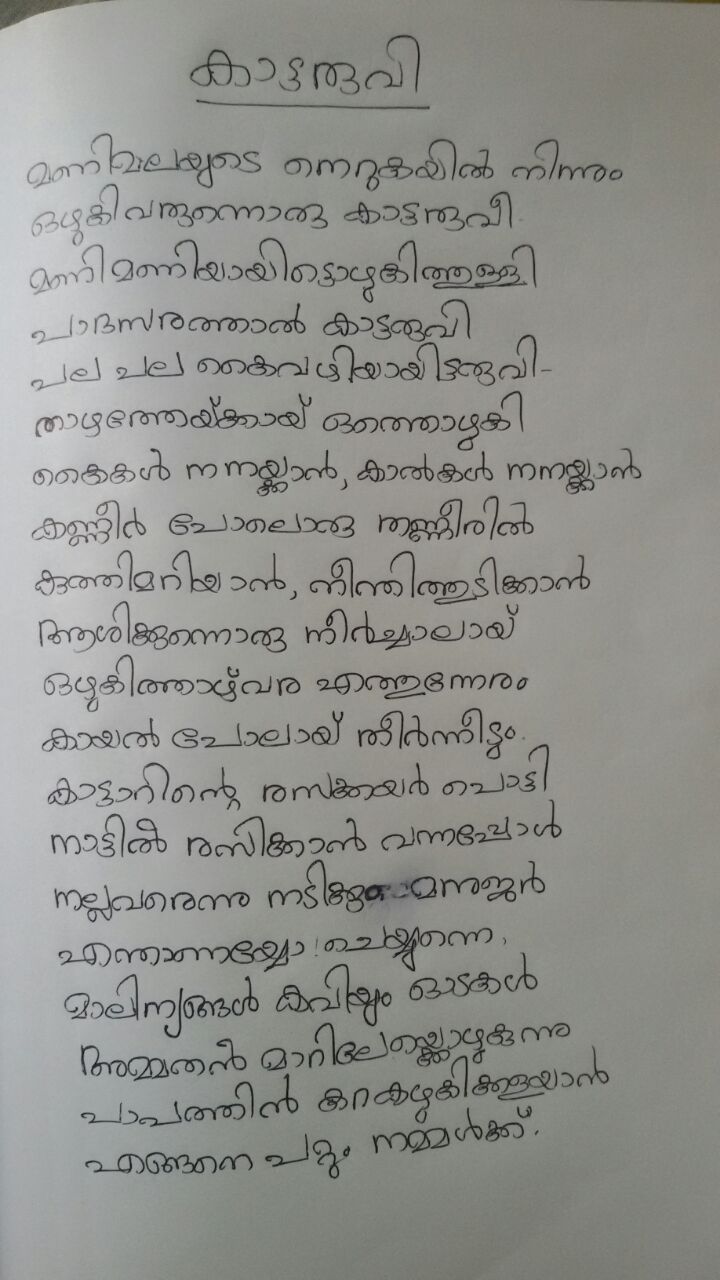 കാട്ടരുവി
മണിമലയുടെ നെറുകയിൽ നിന്നും
ഒഴുകിവരുന്നൊരു കാട്ടരുവീ.
മണിമണിയായിട്ടൊഴുകിത്തുള്ളി
പാദസരത്താൽ കാട്ടരുവി
പല പല കൈവഴിയായിട്ടരുവി-
താഴത്തേയ്ക്കായ് ഒത്തൊഴുകി
കൈകൾ നനയ്ക്കാൻ, കാൽകൾ നനയ്ക്കാൻ
കണ്ണീർ പോലൊരു തണ്ണീരിൽ
കുത്തിമറിയാൻ, നീന്തിത്തുടിക്കാൻ
ആശിക്കുന്നൊരു നീർച്ചാലായ്
ഒഴുകിത്താഴ്‌വര എത്തുന്നേരം
കായൽ പോലായ് തീർന്നീടും.
കാട്ടാറിന്റെ രസക്കയർ പൊട്ടി
നാട്ടിൽ രസിക്കാൻ വന്നപ്പോൾ
നല്ലവരെന്നു നടിക്കും മനുജർ
എന്താണയ്യോ! ചെയ്യുന്നെ,
മാലിന്യങ്ങൾ കവിയും ഓടകൾ
അമ്മതൻ മാറിലേയ്ക്കൊഴുകുന്നു
പാപത്തിൻ കറകഴുകിക്കളയാൻ
എങ്ങനെ പറ്റും നമ്മൾക്ക്.